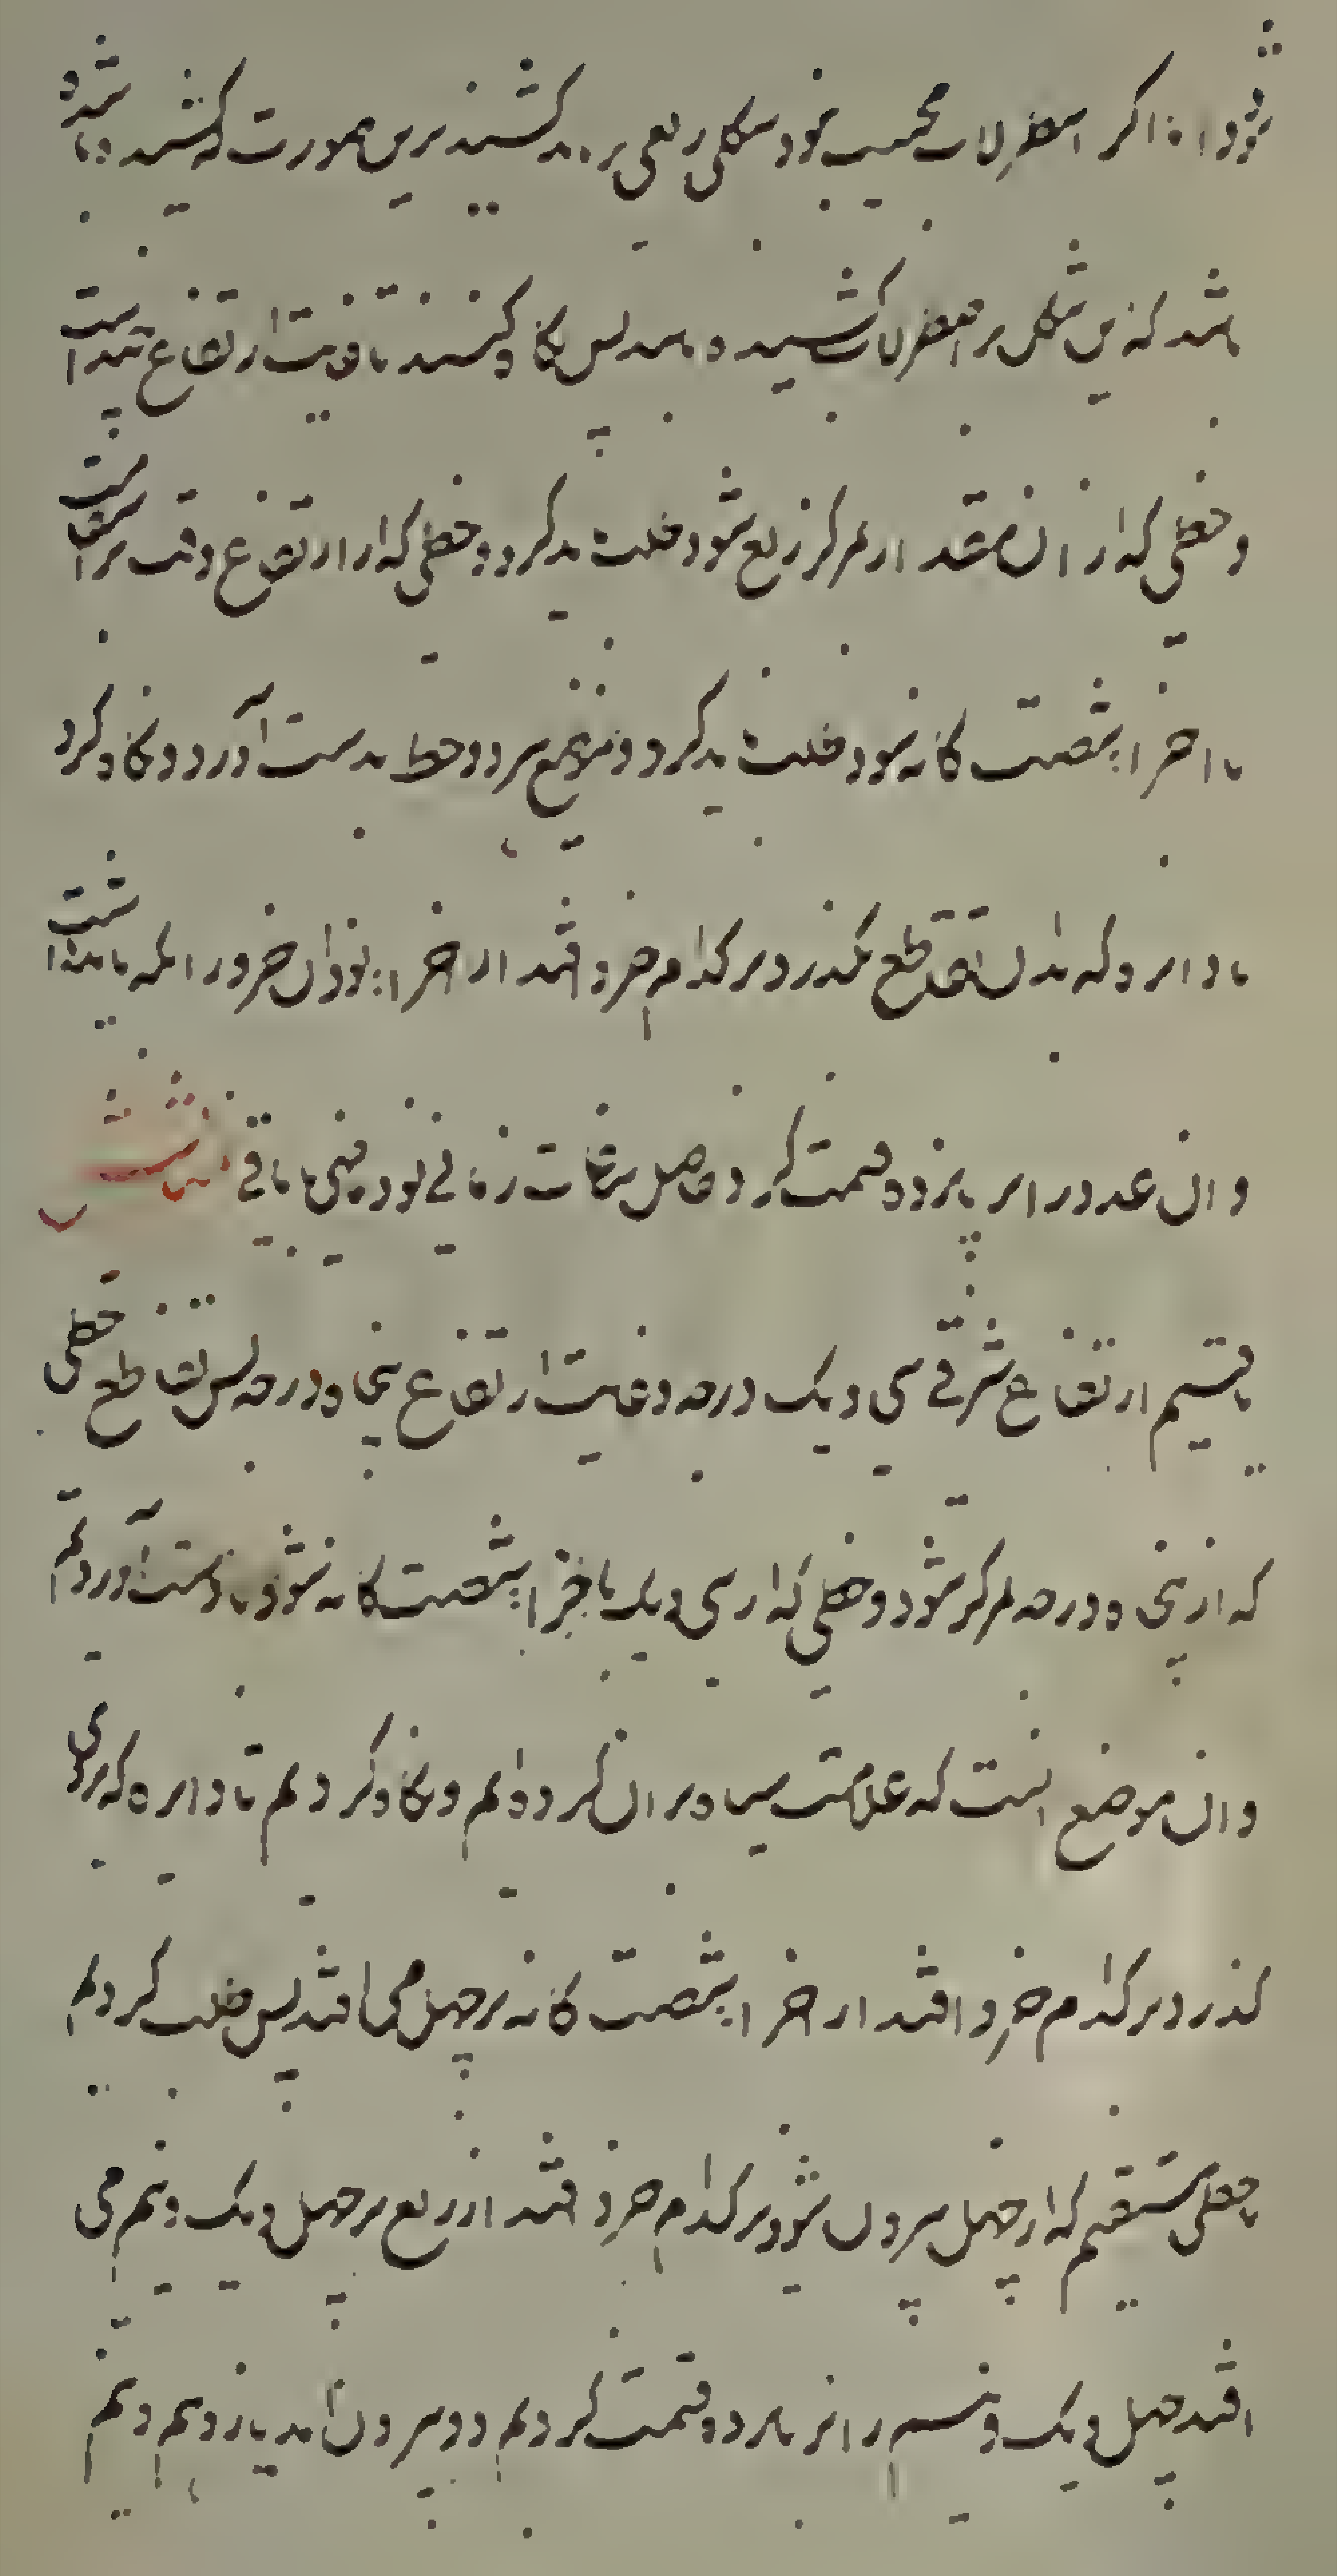 شود اما اگر اسطرلاب مجیب نبود شکلی ربعی بر وی کشند برین صورت که کشیده شده
باشد که این شکل بر اسطرلاب کشیده و باشد پس نگاه کنند تا غایت ارتفاع چند است
و خطی که از آن مقدار بمرکز ربع شود طلب باید کرد و خطی که از ارتفاع وقت راست
با اجزاء شصت گانه شود طلب باید کرد و موضع هر دو خط بدست آورد و نگاه کرد
تا دایره که بدان تقاطع بگذرد بر کدام جزو افتد از اجزاء بود آن جزو را نگه باید داشت
و آن عدد را بر پانزده قسمت کرد حاصل ساعات زمانی بود میضی یا باقی
یافتیم ارتفاع شرقی سی و یک درجه و غایت ارتفاع پنجاه درجه پس تقاطع خطی
که از پنجاه درجه بمرکز شود و خطی که از سی و یک با اجزاء شصت گانه شود بدست آوردیم
و آن موضع است که علامت سیاه بر آن کرده‌ایم و نگاه کردیم تا دایره که بر وی
گذرد بر کدام جزو افتد از اجزاء شصت گانه بر چهل می افتد پس طلب کردیم
خطی مستقیم که از چهل بیرون شود بر کدام جزو افتد از ربع بر چهل و یک و نیم می
افتد چهل و یک و نیم را بر پانزده قسمت کردیم دو بیرون آمد یازده نیم